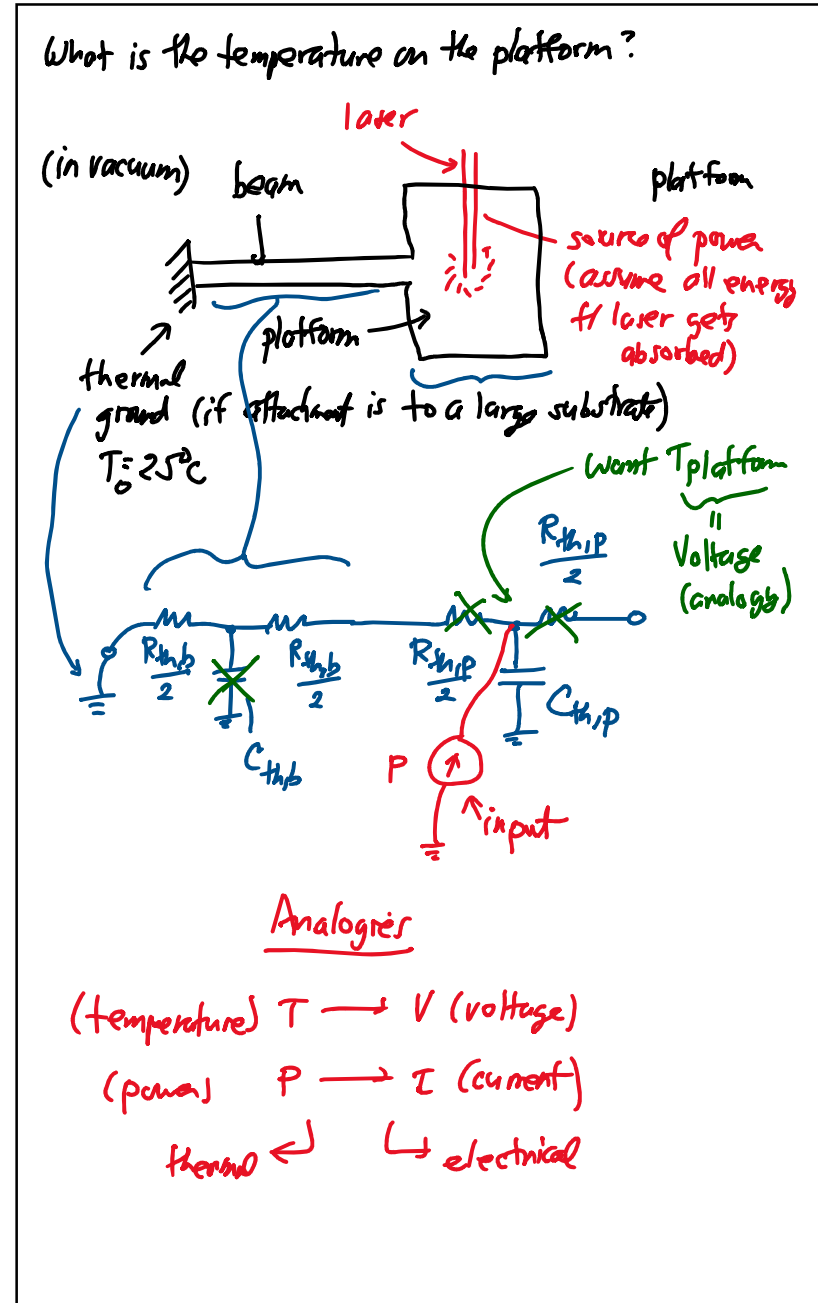 What is the temperature on the platform?
laser
(in vacuum)
beam
platform
source of power
(assume all energy
f/ laser gets
absorbed)
platform
thermal
ground (if attachment is to a large substrate)
T₀ = 25°C
want Tplatform
=
Voltage
(analogy)
Rth,p
2
Rth,b
2
Rth,b
2
Rth,p
2
Cth,p
Cth,b
P
input
Analogies
(temperature) T → V (voltage)
(power) P → I (current)
thermal
electrical